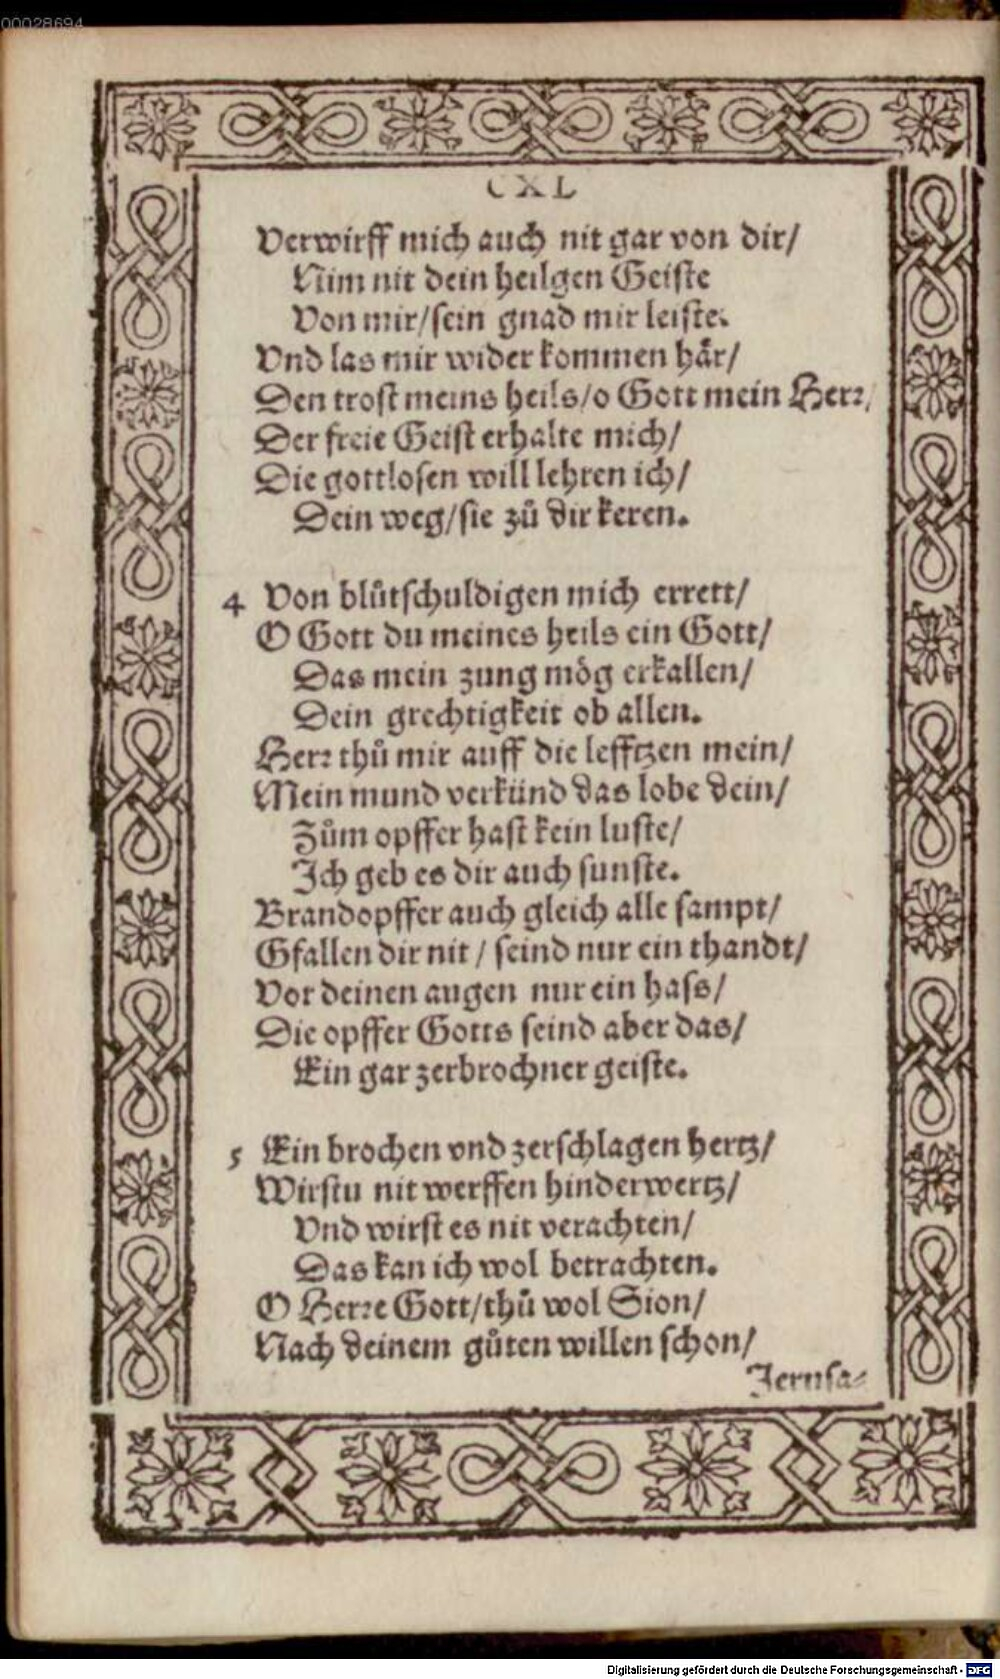 00028694
CXL
Verwirff mich auch nit gar von dir/
Nim nit dein heilgen Geiste
Von mir/sein gnad mir leiste.
Vnd las mir wider kommen här/
Den trost meins heils/o Gott mein Herr/
Der freie Geist erhalte mich/
Die gottlosen will lehren ich/
Dein weg/sie zů dir keren.
4 Von blůtschuldigen mich errett/
O Gott du meines heils ein Gott/
Das mein zung mög erkallen/
Dein grechtigkeit ob allen.
Herr thů mir auff die lefftzen mein/
Mein mund verkünd das lobe dein/
Zům opffer hast kein luste/
Ich geb es dir auch sunste.
Brandopffer auch gleich alle sampt/
Gfallen dir nit / seind nur ein thandt/
Vor deinen augen nur ein hass/
Die opffer Gotts seind aber das/
Ein gar zerbrochner geiste.
5 Ein brochen vnd zerschlagen hertz/
Wirstu nit werffen hinderwertz/
Vnd wirst es nit verachten/
Das kan ich wol betrachten.
O Herre Gott/thů wol Sion/
Nach deinem gůten willen schon/
Jerusa⸗
Digitalisierung gefördert durch die Deutsche Forschungsgemeinschaft - DFG